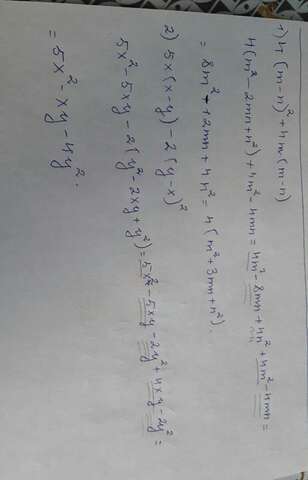 1) 4(m-n)² + 4m(m-n)
4(m²-2mn+n²)+4m²-4mn = 4m²-8mn+4n²+4m²-4mn =
= 8m²+12mn+4n² = 4(m²+3mn+n²).
2) 5x(x-y)-2(y-x)²
5x²-5xy-2(y²-2xy+y²)=5x²-5xy-2y²+4xy-2y² =
= 5x²-xy-4y².